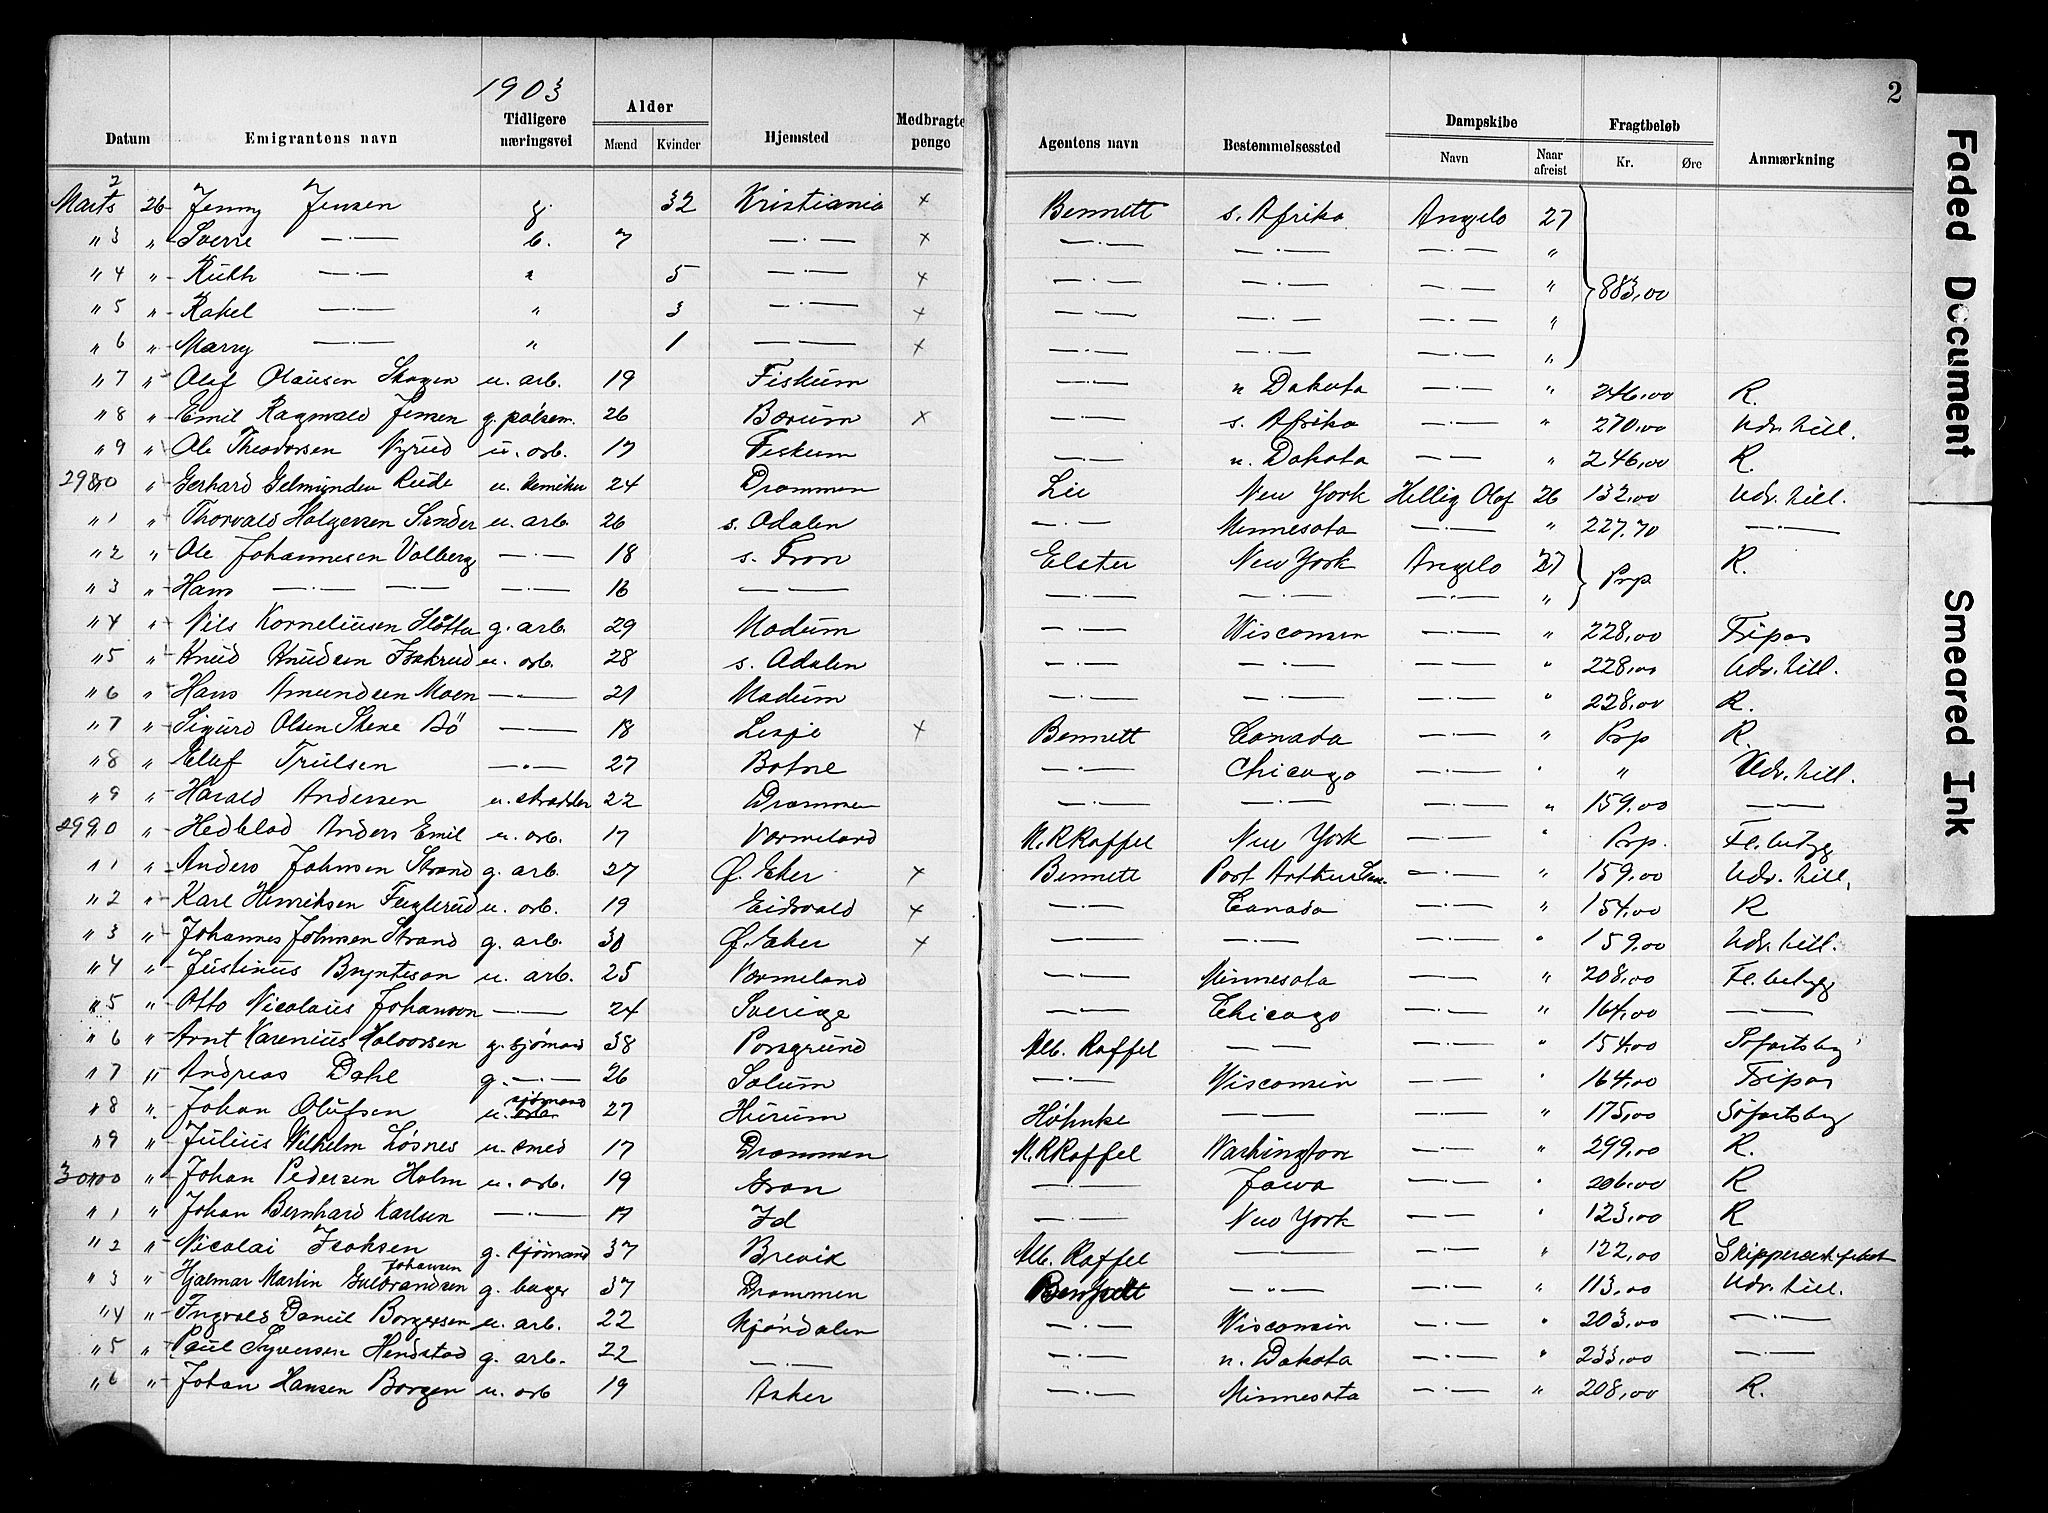 1903
2
Datum Emigrantens navn Tidligere næringsvei Alder Mænd Kvinder Hjemsted Medbragte penge Agentens navn Bestemmelsessted Dampskibe Navn Naar afreist Fragtbeløb Kr. Øre Anmærkning
Marts 2 26 Jenny Jensen g. 32 Kristiania x Bennett s. Afrika Angelo 27
" 3 " Sverre —·— b. 7 —·— x —·— —·— —·— "
" 4 " Ruth —·— " 5 —·— x —·— —·— —·— " 883,00
" 5 " Rakel —·— " 3 —·— x —·— —·— —·— "
" 6 " Marry —·— " 1 —·— x —·— —·— —·— "
" 7 " Olaf Olausen Skagen u. arb. 19 Fiskum —·— n Dakota —·— " 246,00 R.
" 8 " Emil Ragnvald Jensen g. pølsem. 26 Bærum x —·— s. Afrika —·— " 270,00 Udr. till.
" 9 " Ole Theodorsen Nyrud u. arb. 17 Fiskum —·— n. Dakota —·— " 246,00 R.
2980 " Gerhard Gelmunden Rude u. kemiker 24 Drammen Lie New York Hellig Olaf 26 132,00 Udr. till.
" 1 " Thorvald Holgersen Sander u. arb. 26 s. Adalen —·— Minnesota —·— " 227,70 —·—
" 2 " Ole Johannesen Volberg —·— 18 s. Fron Elster New York Angelo 27 Prp R.
" 3 " Hans —·— —·— —·— 16 —·— —·— —·— —·— "
" 4 " Nils Korneliusen Slötta g. arb. 29 Modum —·— Wisconsin —·— " 228,00 Fripas
" 5 " Knud Knudsen Isakrud u. arb. 28 s. Adalen —·— —·— —·— " 228,00 Udr. till.
" 6 " Hans Amundsen Moen —·— 21 Modum —·— —·— —·— " 228,00 R.
" 7 " Sigurd Olsen Skene Bö —·— 18 Lesje x Bennett Canada —·— " Prp R.
" 8 " Olaf Trulsen —·— 27 Botne —·— Chicago —·— " " Udr. till.
" 9 " Harald Andersen u. skrædder 22 Drammen —·— —·— —·— " 159,00 —·—
2990 " Hedblad Anders Emil u. arb. 17 Vermeland M. R Raffel New York —·— " Prp. Fl. betyg
" 1 " Anders Johnsen Strand g. arb. 27 Ø. Eker x Bennett Port Arthur Can. —·— " 159,00 Udr. till.
" 2 " Karl Henriksen Fuglerud u. arb. 19 Eidsvold x —·— Canada —·— " 154,00 R
" 3 " Johannes Johnsen Strand g. arb. 30 Ø. Eker x —·— —·— —·— " 159,00 Udr. till.
" 4 " Justinus Brynteson u. arb. 25 Vermeland —·— Minnesota —·— " 208,00 Fl. betyg
" 5 " Otto Nicolaus Johanson —·— 24 Sverige —·— Chicago —·— " 164,00 —·—
" 6 " Arnt Karenius Halvorsen g. sjömand 38 Porsgrund Alb. Raffel —·— —·— " 154,00 Söfartsbg
" 7 " Andreas Dahl g. —·— 26 Solum —·— Wisconsin —·— " 164,00 Fripas
" 8 " Johan Olufsen u. sjömand 27 Hurum Høhnke —·— —·— " 175,00 Söfartsbg
" 9 " Julius Wilhelm Løsnes u. smed 17 Drammen M. R Raffel Washington —·— " 299,00 R.
3000 " Johan Pedersen Holm u. arb. 19 Gran —·— Jowa —·— " 206,00 R
" 1 " Johan Bernhard Karlsen —·— 17 Id —·— New York —·— " 123,00 R
" 2 " Nicolai Isaksen g. sjömand 37 Brevik Alb. Raffel —·— —·— " 122,00
" 3 " Hjalmar Martin Johansen Gulbrandsen g. bager 37 Drammen Bennett —·— —·— " 113,00 Udr. till.
" 4 " Ingvald Daniel Borgersen u. arb. 22 Mjöndalen —·— Wisconsin —·— " 203,00 —·—
" 5 " Paul Syversen Hendstad g. arb. 22 —·— —·— n. Dakota —·— " 233,00 —·—
" 6 " Johan Hansen Borgen u. arb 19 Asker —·— Minnesota —·— " 208,00 R.
Faded Document
Smeared Ink